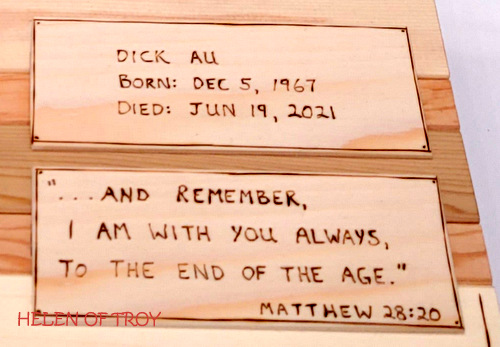 DICK AU
BORN: DEC 5, 1967
DIED: JUN 19, 2021
"...AND REMEMBER,
I AM WITH YOU ALWAYS,
TO THE END OF THE AGE."
MATTHEW 28:20
HELEN OF TROY